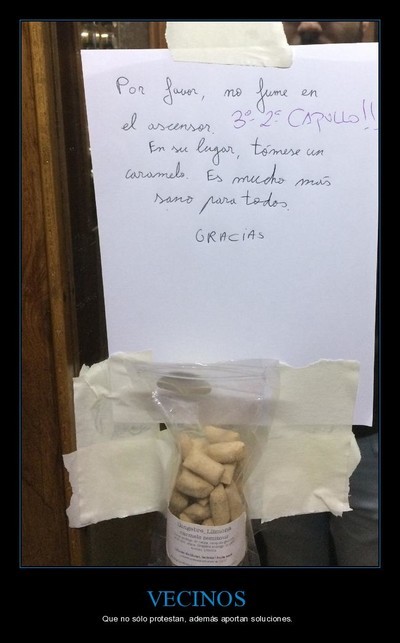 Por favor, no fume en
el ascensor. 3º-2ª CAPULLO!!
En su lugar, tómese un
caramelo. Es mucho más
sano para todos.
GRACIAS
VECINOS
Que no sólo protestan, además aportan soluciones.